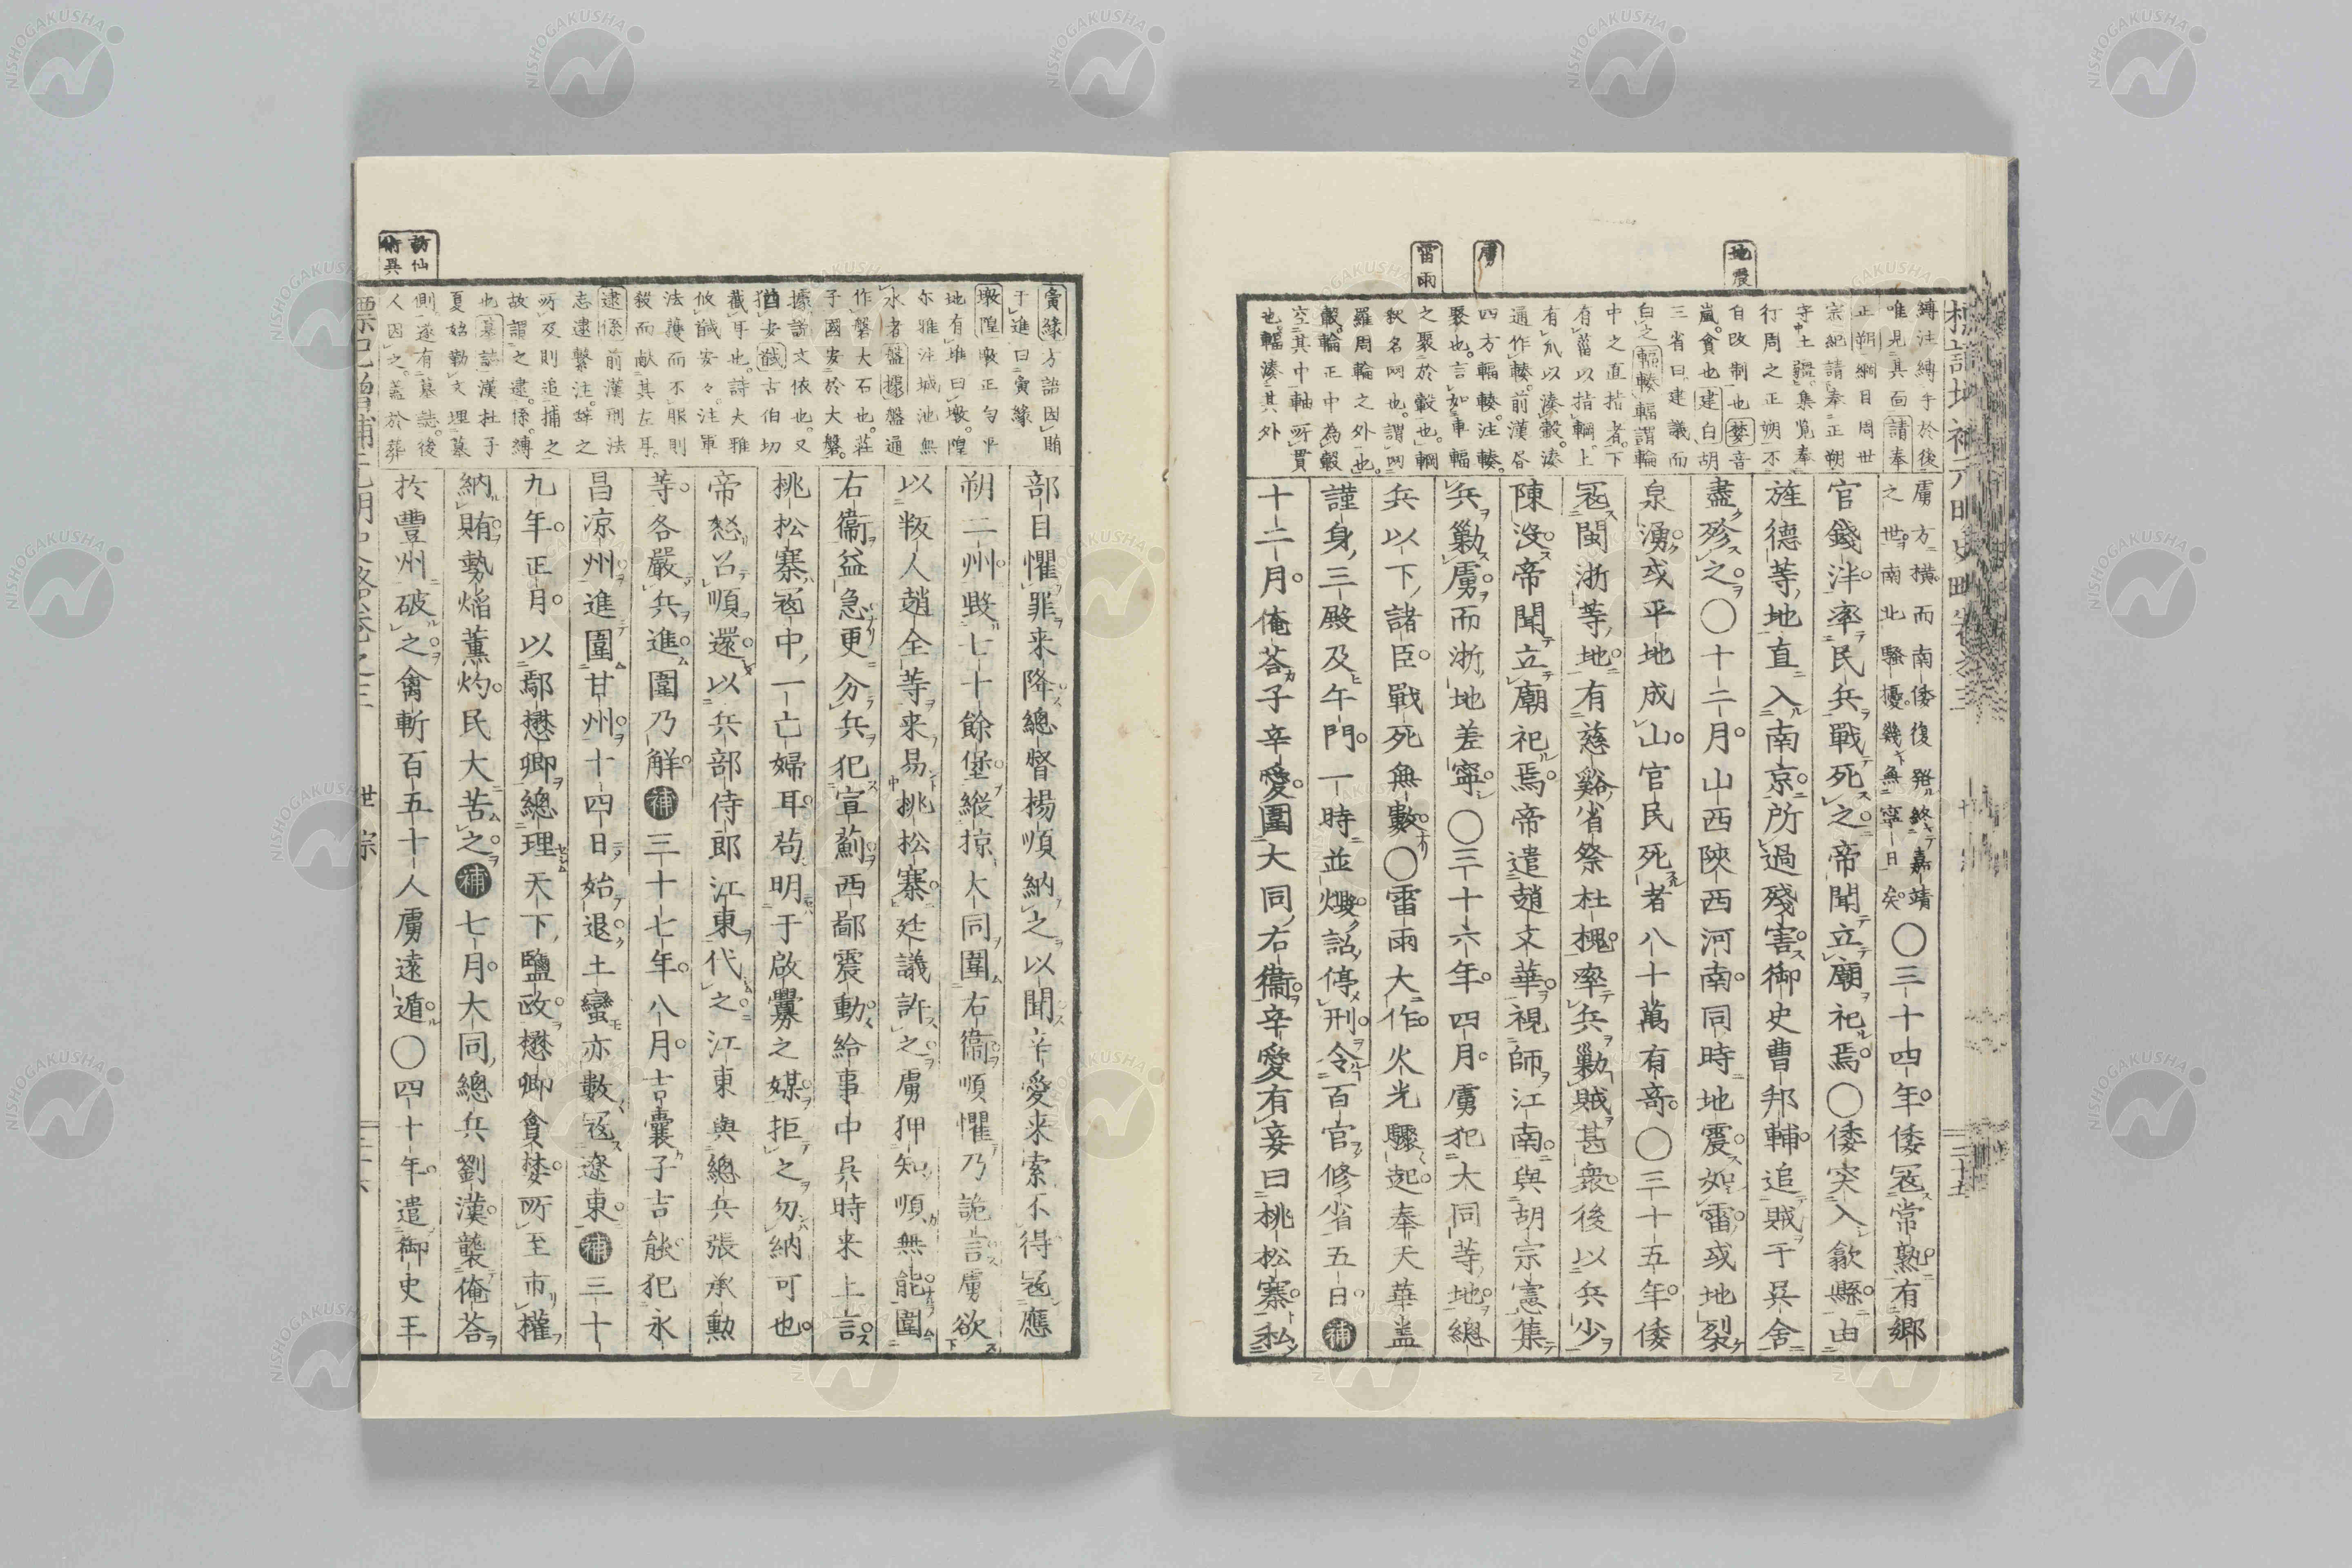 地震
虜
雷雨
縛注縛手於後
唯見其面請奉
正朔綱目周世
宗紀請奉正朔
守中土疆集覧奉
行周之正朔不
自改制也婪音
嵐貪也建白胡
三省曰建議而
白之輻輳輻謂輪
中之直指者下
有菑以指輞上
有爪以湊轂湊
通作輳前漢叔
四方輻輳注輳
聚也言如車輻
之聚於轂也輞
釈名网也謂网
羅周輪之外也
轂輪正中為轂
空其中軸所貫
也輻湊其外
虜方横而南倭復発終嘉靖
之世南北騒擾幾無寧日矣
〇三十四年倭冦常熟有郷
官錢泮率民兵戰死之帝聞立廟祀焉〇倭突入歙縣由
旌德等地直入南京所過殘害御史曹邦輔追賊于呉舍
盡殄之〇十二月山西陝西河南同時地震如雷或地裂
泉湧或平地成山官民死者八十萬有奇〇三十五年倭
冦閩浙等地有慈谿省祭杜槐率兵勦賊甚衆後以兵少
陳没帝聞立廟祀焉帝遣趙文華視師江南與胡宗憲集
兵勦虜而浙地差寧〇三十六年四月虜犯大同等地總
兵以下諸臣戰死無數〇雷雨大作火光驟起奉天華盖
謹身三殿及午門一時並燬詔停刑令百官修省五日補
十二月俺荅子辛愛圍大同右衞辛愛有妾曰桃松寨私
訪仙
術異
夤縁方語因賄
于進曰夤縁
墩隍墩正勻平
地有堆曰墩隍
亦雅注城池無
水者盤據盤通
作磐大石也莊
子國安於大磐
據説文依也又
酋女馘古伯切
截耳也詩大雅
攸馘安々注軍
法護而不服則
殺而献其左耳
逮係前漢刑法
志逮繋注辞之
所及則追捕之
故謂之逮係縛
也墓誌漢杜子
夏始勒文埋墓
側遂有墓誌後
人因之盖於葬
部目懼罪来降總督楊順納之以聞辛愛来索不得冦應
朔二州毀七十餘堡縱掠大同圍右衞順懼乃詭言虜欲
以叛人趙全等来易桃松寨廷議許之虜狎知順無能圍
右衞益急更分兵犯宣薊西鄙震動給事中呉時来上言
桃松寨冦中一亡婦耳苟明于啟釁之媒拒之勿納可也
帝怒召順還以兵部侍郎江東代之江東與總兵張承勲
等各嚴兵進圍乃解補三十七年八月吉囊子吉能犯永
昌凉州進圍甘州十四日始退土蠻亦數冦遼東補三十
九年正月以鄢懋卿總理天下鹽政懋卿貪婪所至市權
納賄勢焔薫灼民大苦之補七月大同總兵劉漢襲俺荅
於豐州破之禽斬百五十人虜遠遁〇四十年遣御史王